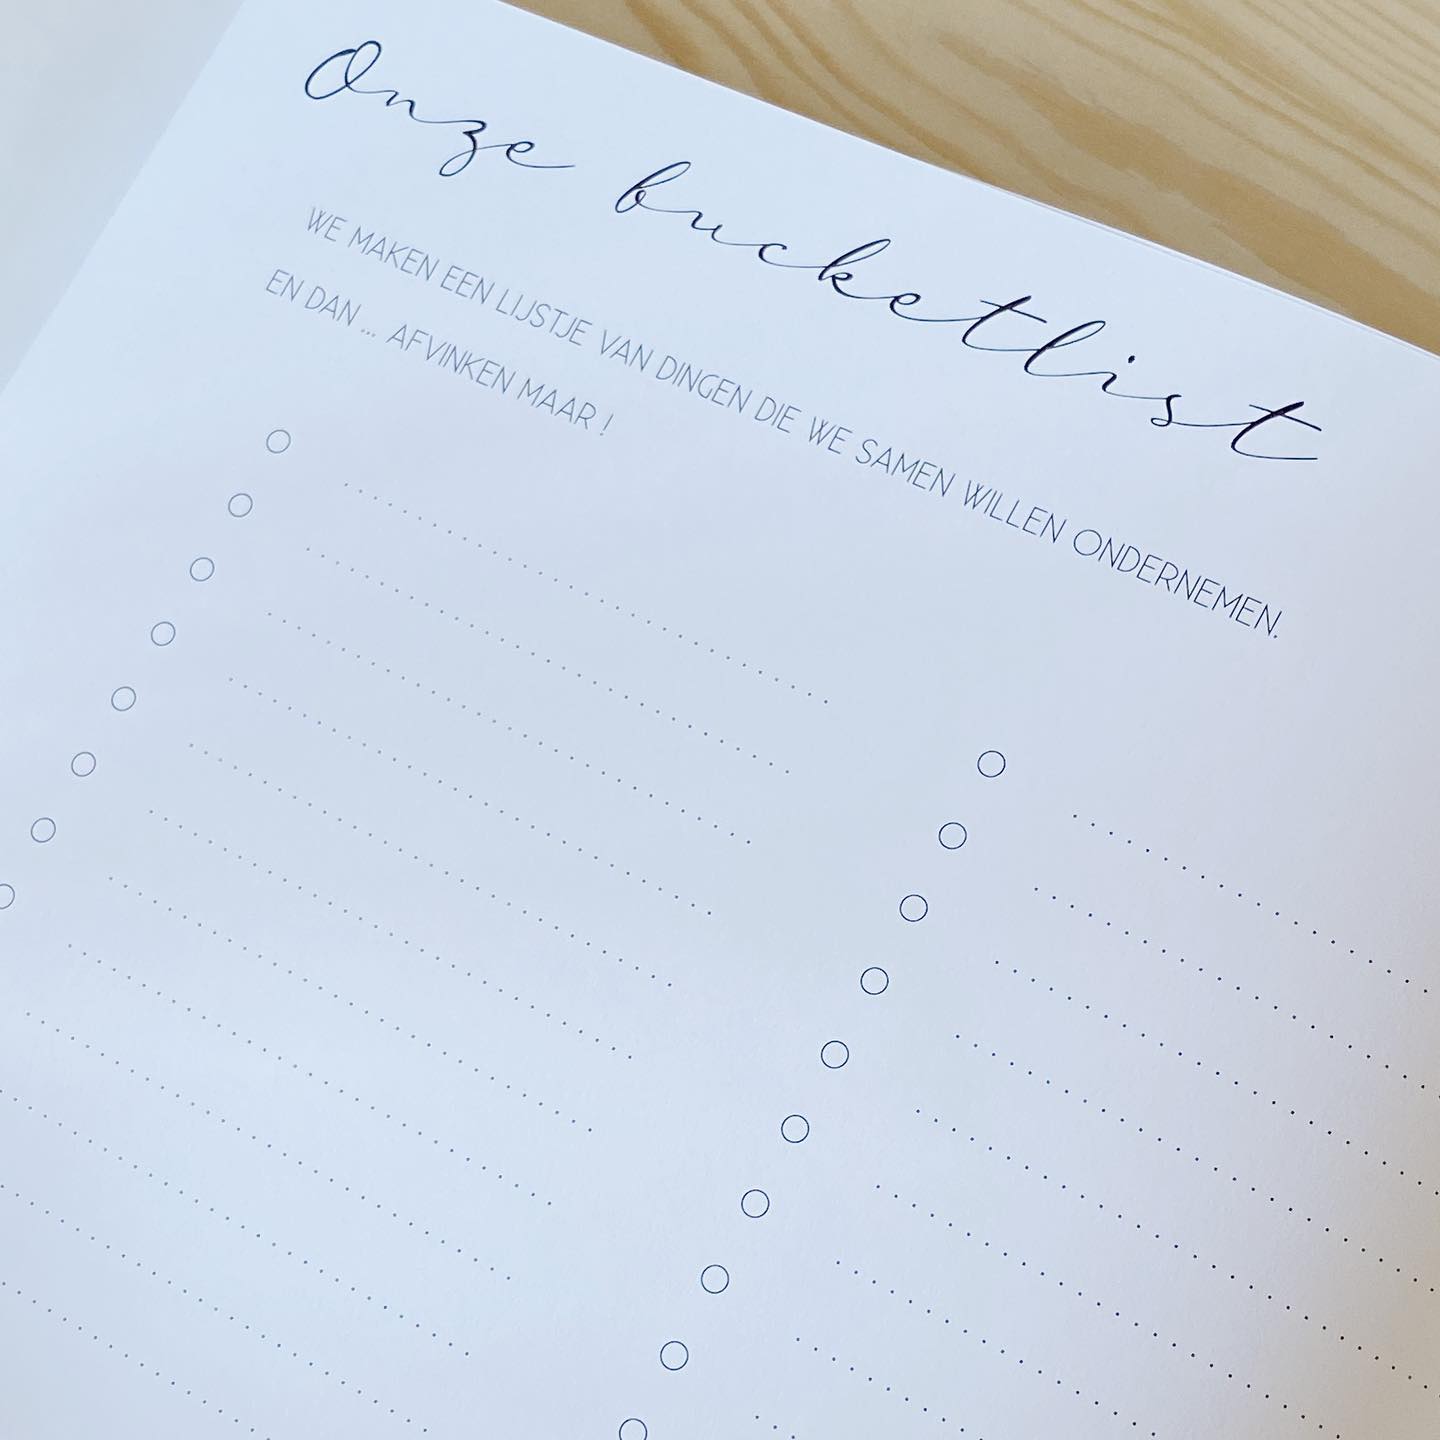 Onze bucketlist
WE MAKEN EEN LIJSTJE VAN DINGEN DIE WE SAMEN WILLEN ONDERNEMEN.
EN DAN ... AFVINKEN MAAR !